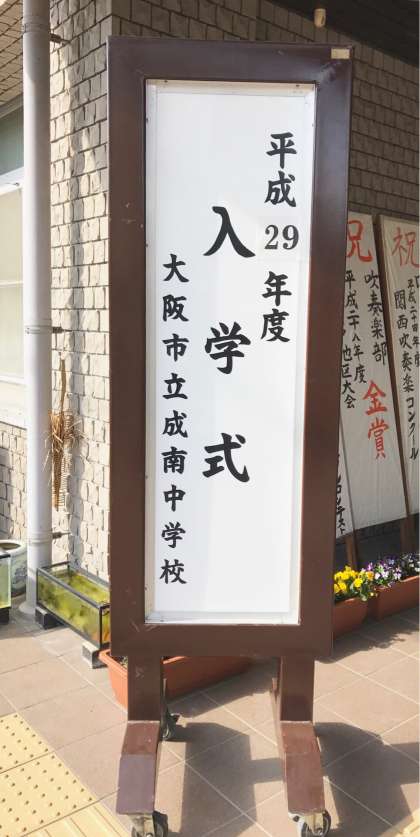 平成29年度
入学式
大阪市立成南中学校
祝
関西吹奏楽コンクール
祝
吹奏楽部
平成二十八年度
地区大会
金賞